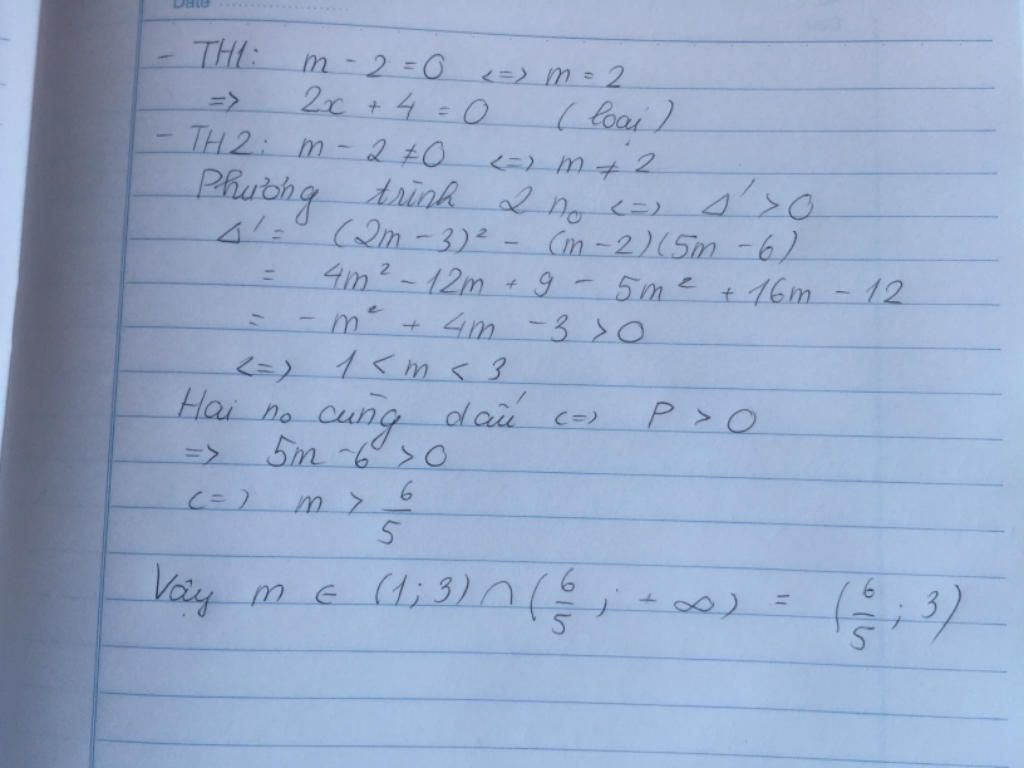 Date
- TH1: m - 2 = 0 <=> m = 2
=> 2x + 4 = 0 (loại)
- TH2: m - 2 ≠ 0 <=> m ≠ 2
Phương trình 2 n₀ <=> Δ' > 0
Δ' = (2m - 3)² - (m - 2)(5m - 6)
= 4m² - 12m + 9 - 5m² + 16m - 12
= - m² + 4m - 3 > 0
<=> 1 < m < 3
Hai n₀ cùng dấu <=> P > 0
=> 5m - 6 > 0
<=> m > 6/5
Vậy m ∈ (1; 3) ∩ (6/5; +∞) = (6/5; 3)